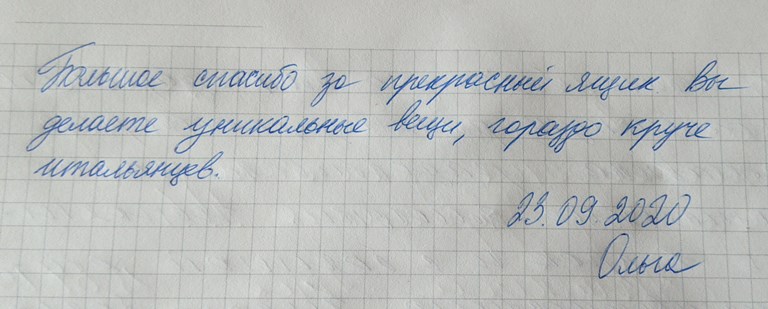 Большое спасибо за прекрасный ящик Вы
делаете уникальные вещи, гораздо круче
итальянцев.
23.09.2020
Ольга